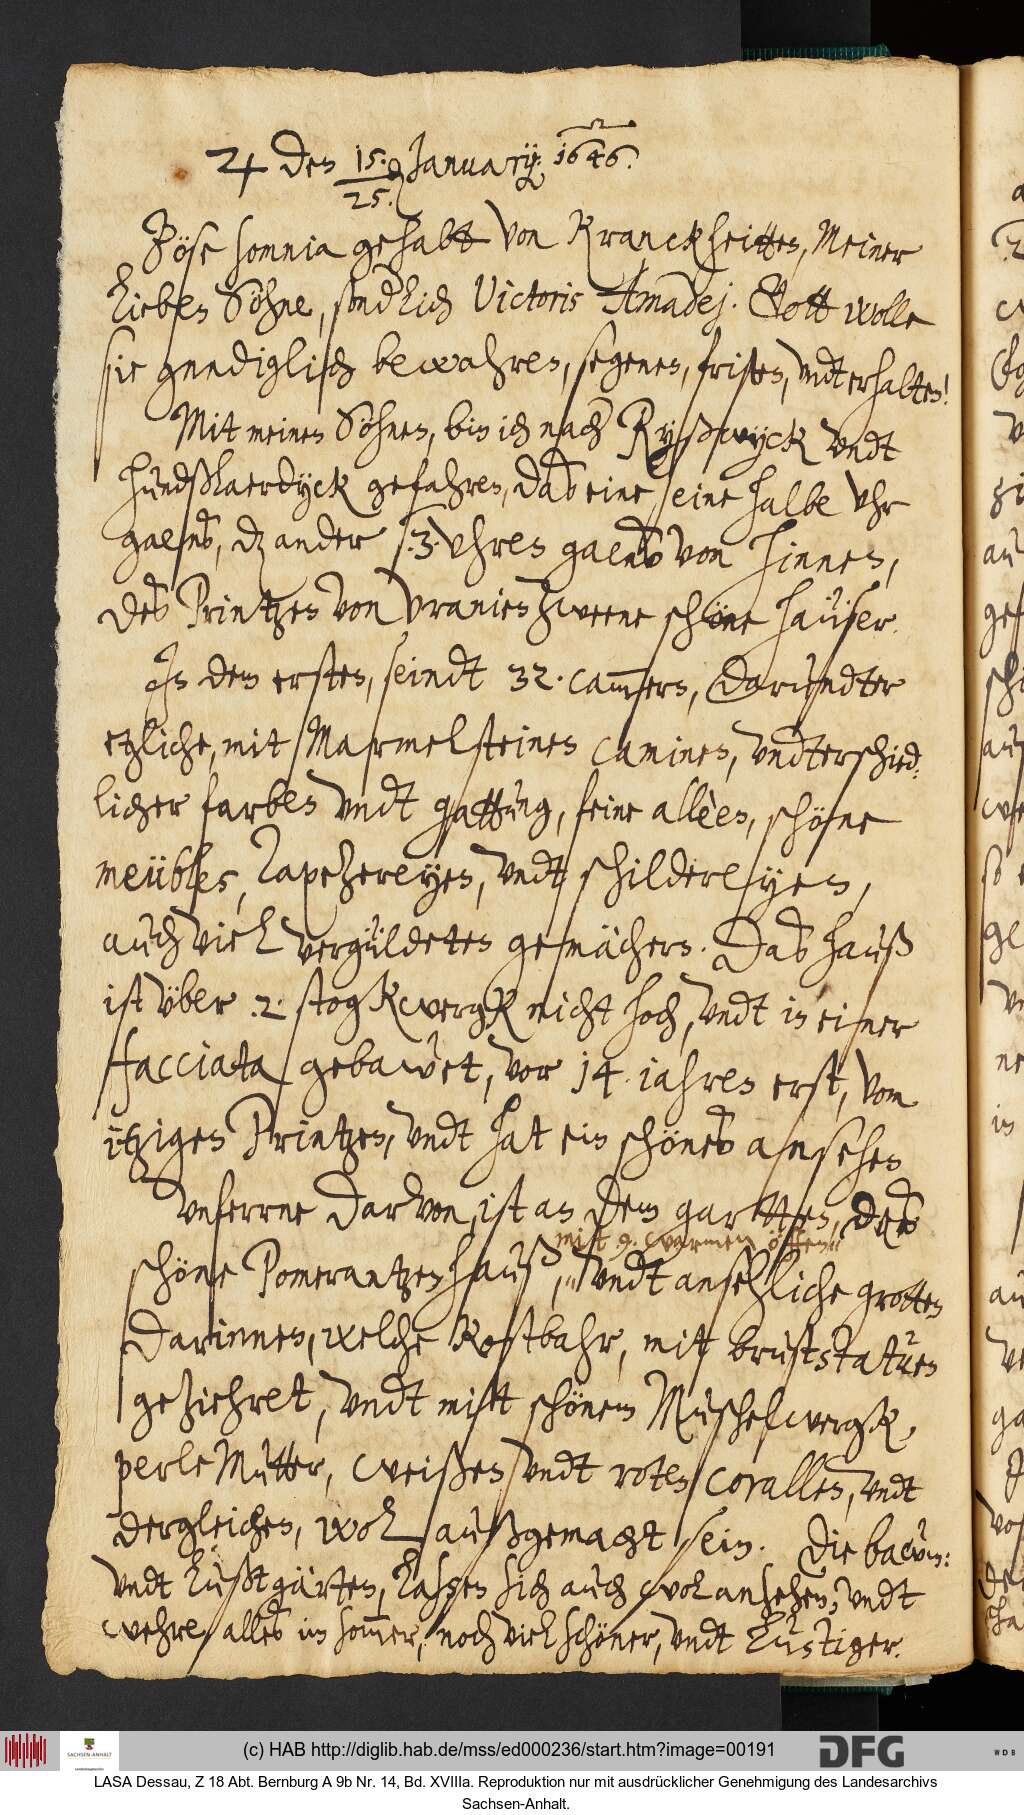 ♃ den 15./25. January: 1646.
Böse somnia gehabtt von Kranckheitten, Meiner
lieben Söhne, sondlich Victoris Amadej. Gott wolle
sie gnediglich bewahren, segenen, fristen, vndt erhalten!
Mit meinen Söhnen, bin ich nach Ryßwyck vndt
Hundßlaerdyck gefahren, daß eine eine halbe vhr
gaends, dz ander .3. vhren gaends von hinnen,
des Printzen von Vranien zweene schöne häuser.
In dem ersten, seindt 32. cam̅ern, darundter
etzliche, mit Marmelsteinen caminen, vndterschied-
licher farben vndt gattung, feine allèen, schöne
meübles, Tapezereyen, vndt schildereyen,
auch viel vergüldeten gemächern. Das hauß
ist vber .2. stogkwergk nicht hoch, vndt in einer
facciata gebawet, vor 14. iahren erst, vom
itzigen Printzen, vndt hat ein schönes ansehen
Vnferrne darvon, ist an dem gartten, das
mitt 9. warmen öffen
schöne Pomerantzenhauß, vndt ansehliche grotten
darinnen, welche kostbahr, mitt bruststatuen
geziehret, vndt mitt schönem Muschelwergk,
perleMutter, weißen vndt roten corallen, vndt
dergleichen, wol außgemacht sein. Die bawm:
vndt Lußtgärten, laßen sich auch wol ansehen, vndt
wehre alles im som̅er, noch viel schöner, vndt lustiger.
(c) HAB http://diglib.hab.de/mss/ed000236/start.htm?image=00191
SACHSEN-ANHALT
DFG
WDB
LASA Dessau, Z 18 Abt. Bernburg A 9b Nr. 14, Bd. XVIIIa. Reproduktion nur mit ausdrücklicher Genehmigung des Landesarchivs
Sachsen-Anhalt.